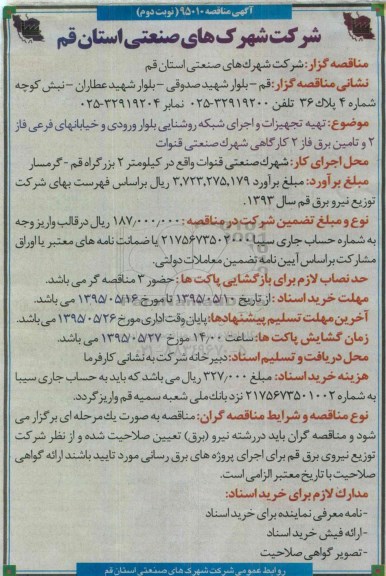 آگهی مناقصه ۱۰-۹۵ (نوبت دوم)
شرکت شهرک های صنعتی استان قم
مناقصه گزار: شرکت شهرک های صنعتی استان قم
نشانی مناقصه گزار: قم – بلوار شهید صدوقی – بلوار شهید عطاران – نبش کوچه
شماره ۴ پلاک ۳۶ تلفن ۳۲۹۱۹۲۰۰-۰۲۵ نمابر ۳۲۹۱۹۲۰۴-۰۲۵
موضوع: تهیه تجهیزات و اجرای شبکه روشنایی بلوار ورودی و خیابانهای فرعی فاز
۲ و تامین برق فاز ۲ کارگاهی شهرک صنعتی قنوات
محل اجرای کار: شهرک صنعتی قنوات واقع در کیلومتر ۲ بزرگراه قم - گرمسار
مبلغ برآورد: مبلغ برآورد ۳,۷۲۳,۲۷۵,۱۷۹ ریال براساس فهرست بهای شرکت
توزیع نیرو برق قم سال ۱۳۹۳.
نوع و مبلغ تضمین شرکت در مناقصه: ۱۸۷/۰۰۰/۰۰۰ ریال در قالب واریز وجه
به شماره حساب جاری سیبا یا ضمانت نامه های معتبر یا اوراق
مشارکت براساس آیین نامه تضمین معاملات دولتی.
حد نصاب لازم برای بازگشایی پاکت ها: حضور ۳ مناقصه گر می باشد.
مهلت خرید اسناد: از تاریخ ۱۳۹۵/۰۵/۱۰ تا مورخ ۱۳۹۵/۰۵/۱۶ می باشد.
آخرین مهلت تسلیم پیشنهادها: پایان وقت اداری مورخ ۱۳۹۵/۰۵/۲۶ می باشد.
زمان گشایش پاکت ها: ساعت ۱۴/۰۰ مورخ ۱۳۹۵/۰۵/۲۷ می باشد.
محل دریافت و تسلیم اسناد: دبیرخانه شرکت به نشانی کارفرما
هزینه خرید اسناد: مبلغ ۳۲۷/۰۰۰ ریال می باشد که باید به حساب جاری سیبا
به شماره ۲۱۷۵۶۷۳۵۰۱۰۰۲ نزد بانک ملی شعبه سمیه قم واریز گردد.
نوع مناقصه و شرایط مناقصه گران: مناقصه به صورت یک مرحله ای برگزار می
شود و مناقصه گران باید در رشته نیرو (برق) تعیین صلاحیت شده و از نظر شرکت
توزیع نیروی برق قم برای اجرای پروژه های برق رسانی مورد تایید باشند ارائه گواهی
صلاحیت با تاریخ معتبر الزامی است.
مدارک لازم برای خرید اسناد:
-نامه معرفی نماینده برای خرید اسناد
-ارائه فیش خرید اسناد
-تصویر گواهی صلاحیت
روابط عمومی شرکت شهرک های صنعتی استان قم